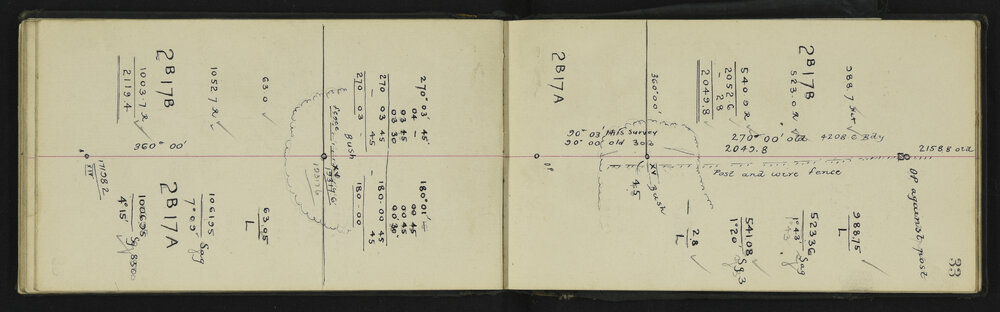 2B17B
1003.7 R
2119.4
1052.7 R
63.0
360° 00'
XIV
2B17A
100695
4° 15' Sg
106195 Sag
7° 05'
63.05
L
Bush
XV
270° 03' 45"
04 -
03 45
03 30
270 03 45
- 45
270 03 -
180° 01'
00 45
00 45
00 30
180.00 45
- 45
180.00
33
2B17A
360° 00'
2B17B
523.0 R
540.0 R
2052.6
- 2.8
2049.8
988.7
90° 03' Mfs survey
90° 00' old 30.3
270° 00' old
2049.8
4208 E Bdy
2158.8 old
XV
Bush
Post and wire fence
OP
OP against post
2.8
L
54108
1° 20' Sg 3
52336
1° 43' Sag
98875
L